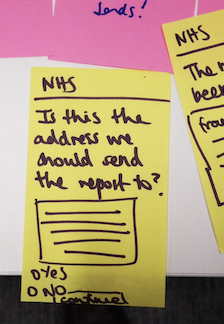 Sends!
NHS
Is this the
address we
should send
the report to?
YES
NO
continue
NHS
The r
been
frau